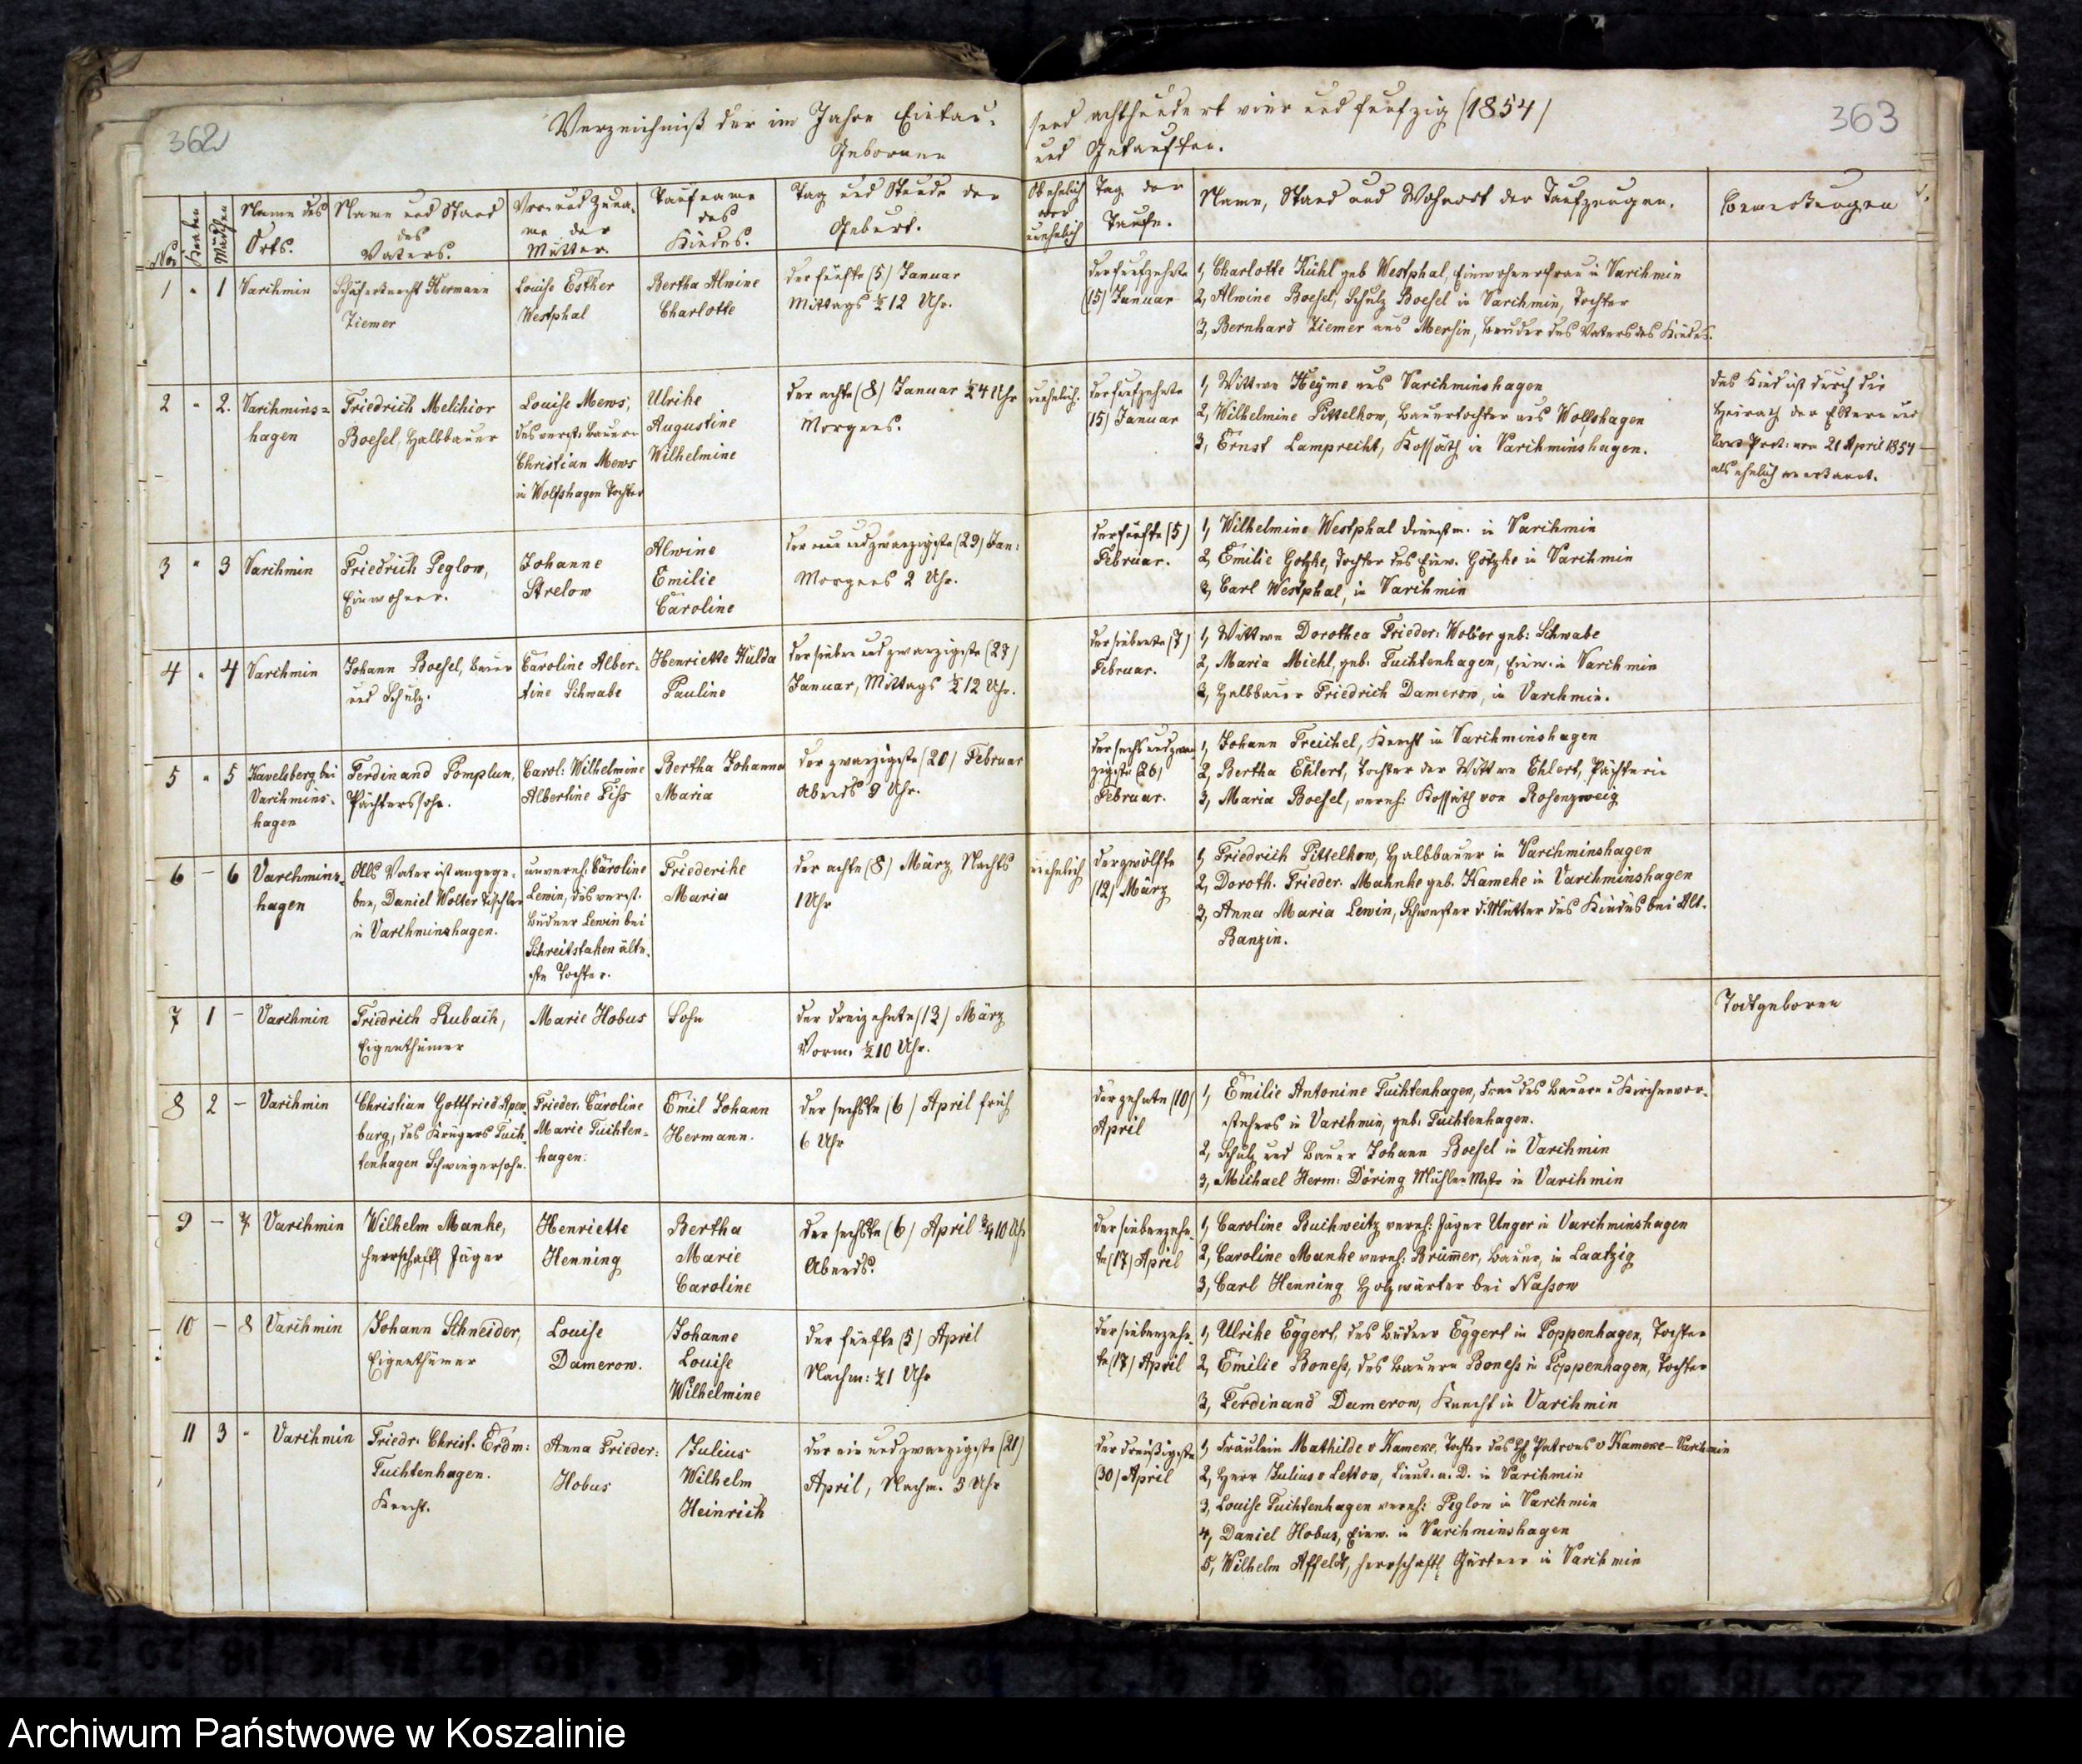 362
363
Verzeichniß der im Jahre Eintau-
send achthundert vier und fünfzig (1854)
Gebornen
und Getauften.
No.
Knaben
Mädchen
Name des
Orts.
Name und Stand
des
Vaters.
Vor- und Zuna-
me der
Mutter.
Taufname
des
Kindes.
Tag und Stunde der
Geburt.
Ob ehelich
oder
unehelich
Tag der
Taufe.
Name, Stand und Wohnort der Taufzeugen.
Bemerkungen
1 " 1 Varchmin
Schäferknecht Hermann
Ziemer
Louise Esther
Westphal
Bertha Alwine
Charlotte
der fünfte (5) Januar
Mittags ½12 Uhr.
der funfzehnte
(15) Januar
1, Charlotte Kühl geb Westphal, Einwohnerfrau in Varchmin
2, Alwine Boesel, Schulz Boesel in Varchmin, Tochter
3, Bernhard Ziemer aus Mersin, Bruder des Vaters des Kindes.
2 " 2. Varchmins-
hagen
Friedrich Melchior
Boesel, Halbbauer
Louise Mews,
des verst. Bauern
Christian Mews
in Wolfshagen Tochter
Ulrike
Augustine
Wilhelmine
der achte (8) Januar ½4 Uhr
Morgens.
unehelich.
der funfzehnte
(15) Januar
1, Wittwe Heyme aus Varchminshagen
2, Wilhelmine Pittelkow, Bauertochter aus Wolfshagen
3, Ernst Lamprecht, Kossäth in Varchminshagen.
Das Kind ist durch die
Heirath der Eltern und
laut Prot: vom 21 April 1854
als ehelich anerkannt.
3 " 3 Varchmin
Friedrich Peglow,
Einwohner.
Johanne
Strelow
Alwine
Emilie
Caroline
der neun und zwanzigste (29) Jan:
Morgens 2 Uhr.
der fünfte (5)
Februar.
1, Wilhelmine Westphal Dienstm. in Varchmin
2, Emilie Gotzke, Tochter des Einw. Götzke in Varchmin
3, Carl Westphal, in Varchmin
4 " 4 Varchmin
Johann Boesel, Bauer
und Schulz.
Caroline Alber-
tine Schwabe
Henriette Hulda
Pauline
der sieben und zwanzigste (27)
Januar, Mittags ½12 Uhr.
der siebente (7)
Februar.
1, Wittwe Dorothea Frieder: Wolter geb: Schwabe
2, Maria Miehl, geb. Tuchtenhagen, Einw. in Varchmin
3, Halbbauer Friedrich Damerow, in Varchmin.
5 " 5 Kavelsberg bei
Varchmins-
hagen
Ferdinand Pomplun,
Pächterssohn.
Carol: Wilhelmine
Albertine Fiss
Bertha Johanna
Maria
der zwanzigste (20) Februar
Abends 9 Uhr.
der sechs und zwan-
zigste (26)
Februar.
1, Johann Treichel, Knecht in Varchminshagen
2, Bertha Ehlert, Tochter der Wittwe Ehlert, Pächterin
3, Maria Boesel, vereh: Kossäth von Rosenzweig
6 – 6 Varchmins-
hagen
Als Vater ist angege-
ben, Daniel Wolter Tischler
in Varchminshagen.
unvereh. Caroline
Lewin, des verst.
Büdner Lewin bei
Schreitstaken älte-
ste Tochter.
Friederike
Maria
der achte (8) März Nachts
1 Uhr
unehelich
der zwölfte
(12) März
1, Friedrich Pittelkow, Halbbauer in Varchminshagen
2, Doroth. Frieder. Mahnke geb. Kameke in Varchminshagen
3, Anna Maria Lewin, Schwester d. Mutter des Kindes bei Alt-
Banzin.
7 1 – Varchmin
Friedrich Rubach,
Eigenthümer
Marie Hobus
Sohn
der dreizehnte (13) März
Vorm. ½10 Uhr.
Todtgeboren
8 2 – Varchmin
Christian Gottfried Apen-
burg, des Krügers Tuch-
tenhagen Schwiegersohn.
Frieder. Caroline
Marie Tuchten-
hagen.
Emil Johann
Hermann.
der sechste (6) April früh
6 Uhr
der zehnte (10)
April
1, Emilie Antonine Tuchtenhagen, Frau des Bauern u Kirchenvor-
stehers in Varchmin, geb. Tuchtenhagen.
2, Schulz und Bauer Johann Boesel in Varchmin
3, Michael Herm: Döring Mühlen Mstr in Varchmin
9 – 7 Varchmin
Wilhelm Manke,
herrschaftl Jäger
Henriette
Henning
Bertha
Marie
Caroline
der sechste (6) April ¾10 Uhr
Abends.
der siebenzehn-
te (17) April
1, Caroline Buchweitz vereh: Jäger Unger in Varchminshagen
2, Caroline Manke vereh: Brümmer, Bauer, in Laatzig
3, Carl Henning Holzwärter bei Nassow
10 – 8 Varchmin
Johann Schneider,
Eigenthümer
Louise
Damerow.
Johanne
Louise
Wilhelmine
der fünfte (5) April
Nachm: ½1 Uhr
der siebenzehn-
te (17) April
1, Ulrike Eggert, des Büdner Eggert in Poppenhagen, Tochter
2, Emilie Boness, des Bauern Boness in Poppenhagen, Tochter
3, Ferdinand Damerow, Knecht in Varchmin
11 3 " Varchmin
Friedr. Christ. Erdm:
Tuchtenhagen.
Knecht.
Anna Frieder:
Hobus
Julius
Wilhelm
Heinrich
der ein und zwanzigste (21)
April, Nachm. 5 Uhr
der dreißigste
(30) April
1, Fräulein Mathilde v Kameke, Tochter des H. Patrons v Kameke-Varchmin
2, Herr Julius v Lettow, Lieut. a. D. in Varchmin
3, Louise Tuchtenhagen vereh: Peglow in Varchmin
4, Daniel Hobus, Einw. in Varchminshagen
5, Wilhelm Affeldt, herrschaftl Gärtner in Varchmin
Archiwum Państwowe w Koszalinie